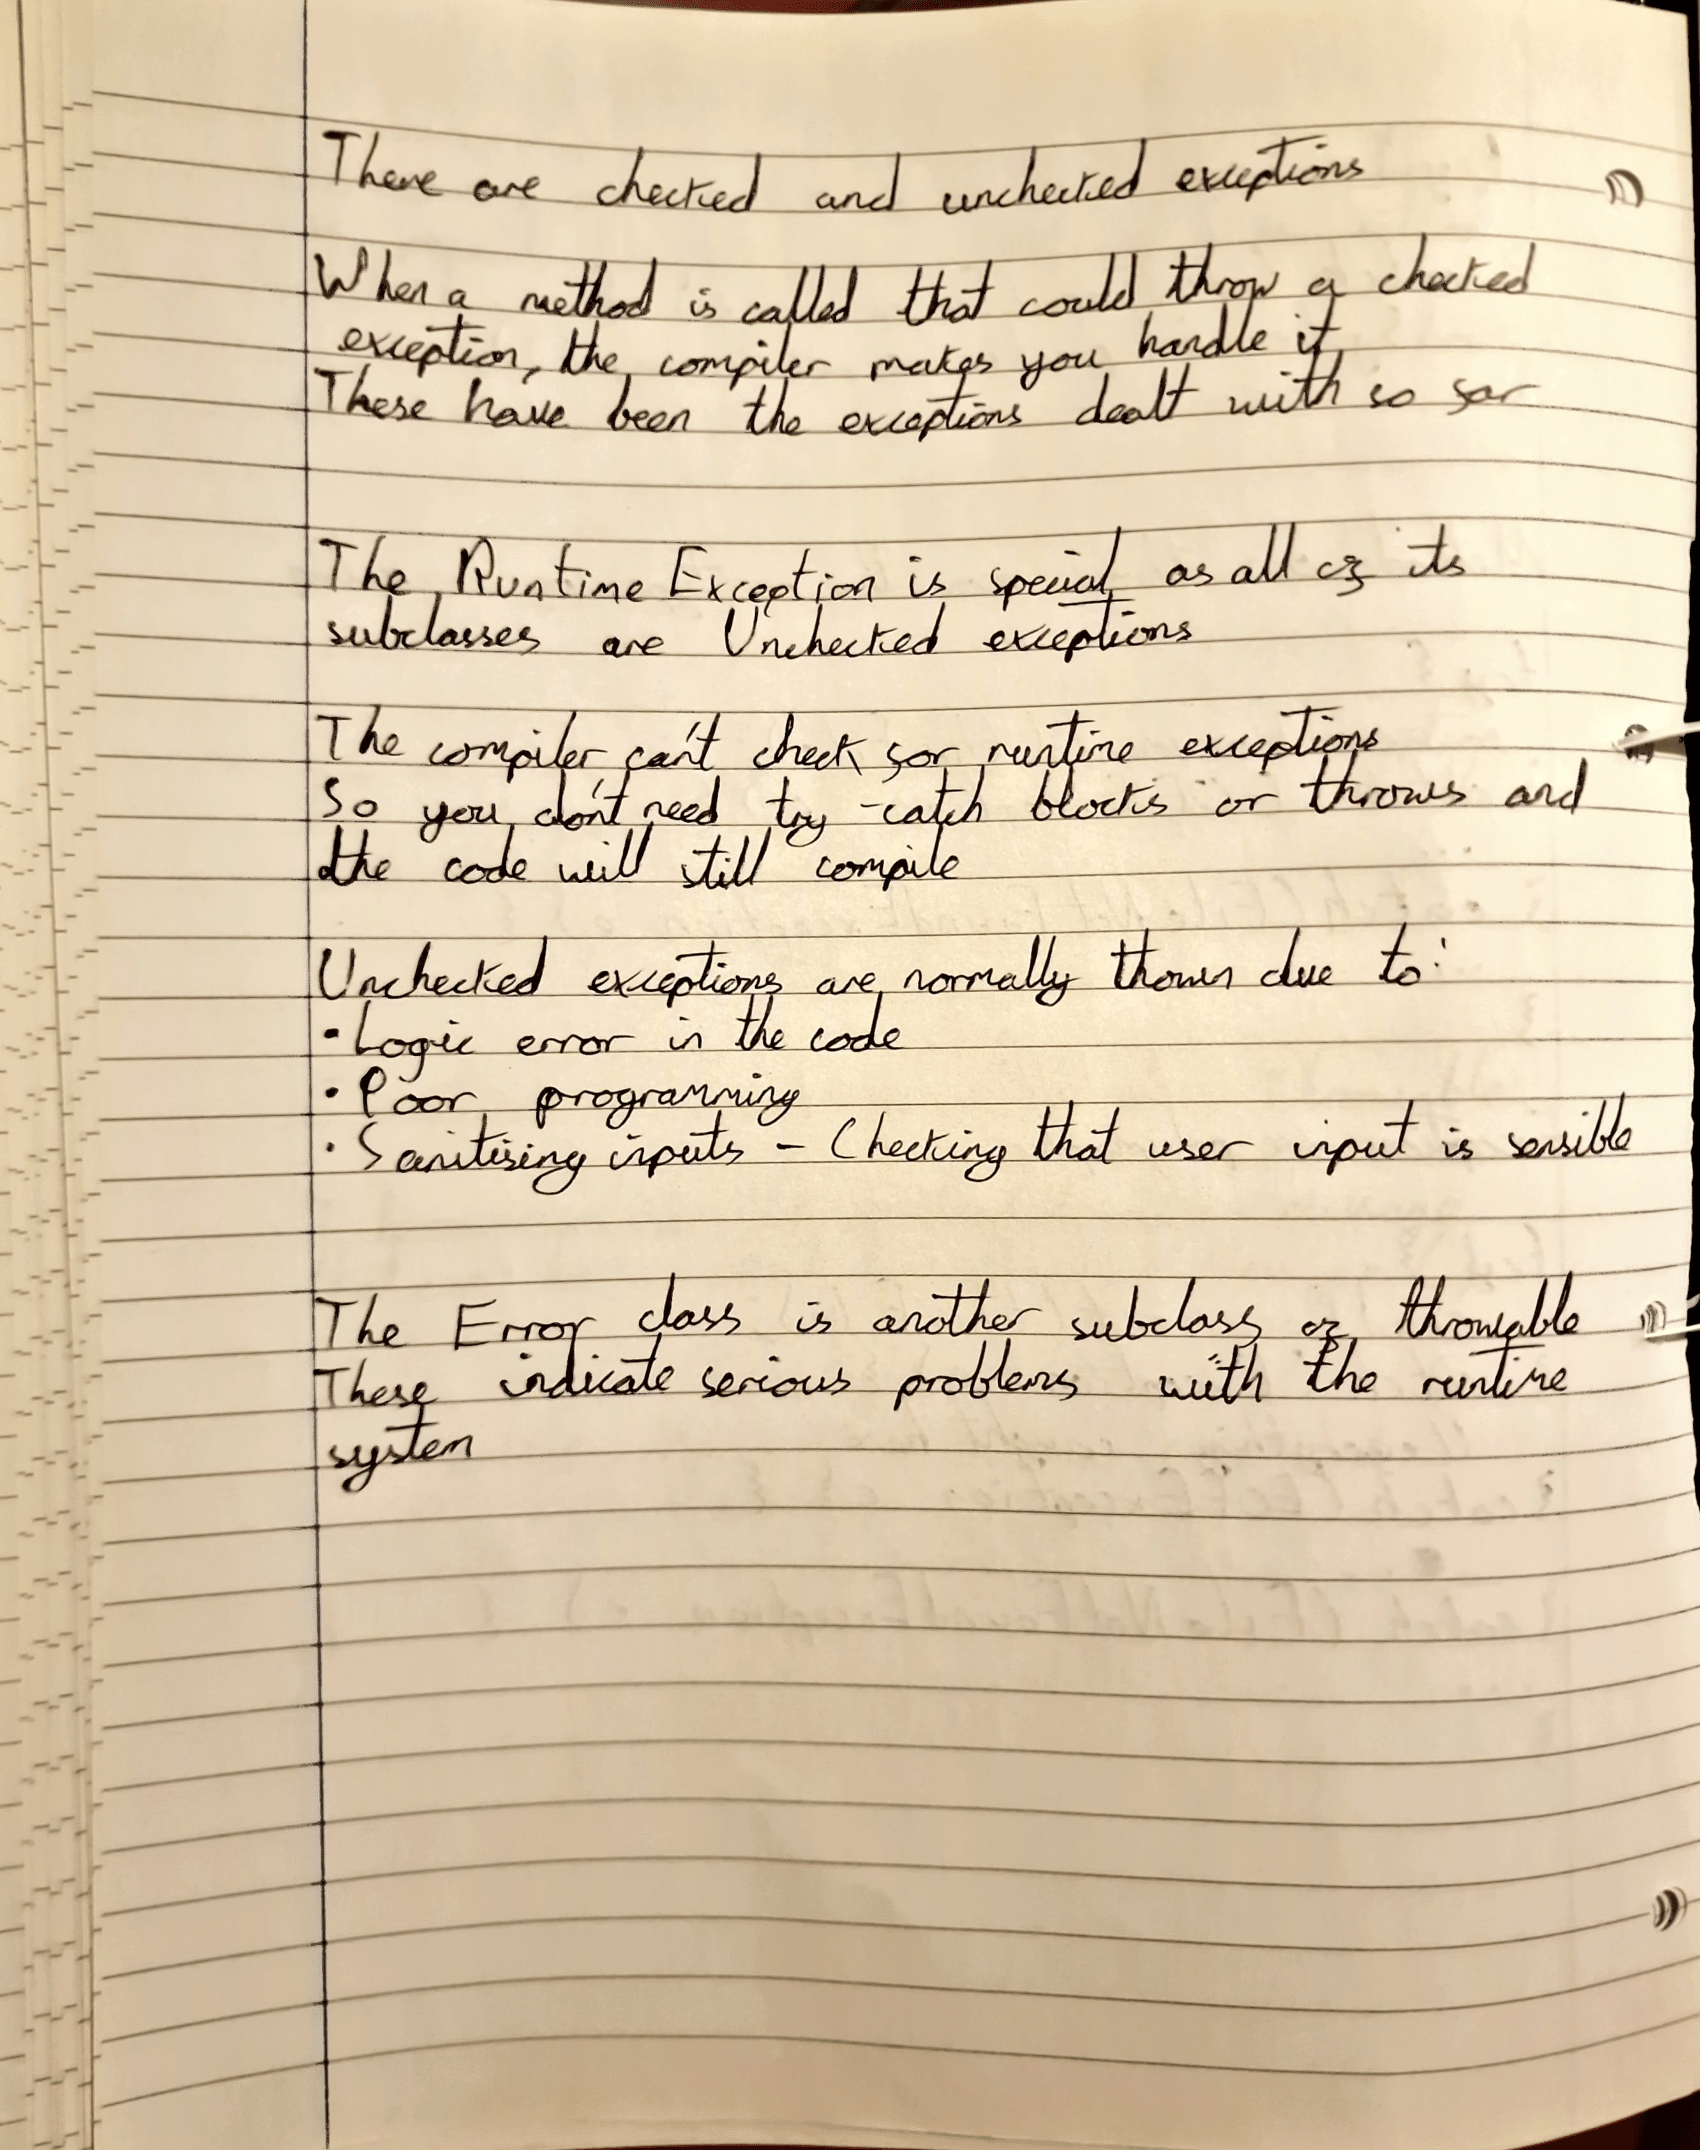 There are checked and unchecked exceptions
When a method is called that could throw a checked
exception, the compiler makes you handle it
These have been the exceptions dealt with so far
The Runtime Exception is special as all of its
subclasses are Unchecked exceptions
The compiler can't check for runtime exceptions
So you don't need try-catch blocks or throws and
the code will still compile
Unchecked exceptions are normally thown due to:
• Logic error in the code
• Poor programming
• Sanitising inputs - Checking that user input is sensible
The Error class is another subclass of throwable
These indicate serious problems with the runtime
system